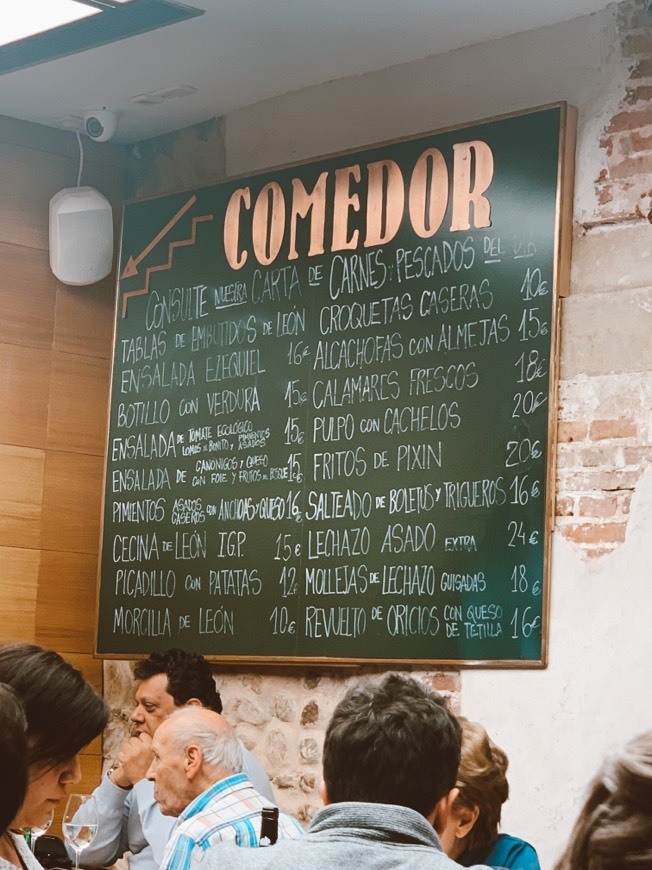 COMEDOR
CONSULTE NUESTRA CARTA DE CARNES Y PESCADOS DEL DIA
TABLAS DE EMBUTIDOS DE LEÓN 16€
ENSALADA EZEQUIEL
BOTILLO CON VERDURA 15€
ENSALADA DE TOMATE ECOLÓGICO LOMOS DE BONITO Y PIMIENTOS ASADOS 15€
ENSALADA DE CANONIGOS Y QUESO CON FOIE Y FRITOS DE BOSQUE 15€
PIMIENTOS ASADOS CASEROS CON ANCHOAS Y QUESO 16€
CECINA DE LEÓN I.G.P. 15€
PICADILLO CON PATATAS 12€
MORCILLA DE LEÓN 10€
CROQUETAS CASERAS 10€
ALCACHOFAS CON ALMEJAS 15€
CALAMARES FRESCOS 18€
PULPO CON CACHELOS 20€
FRITOS DE PIXIN 20€
SALTEADO DE BOLETUS Y TRIGUEROS 16€
LECHAZO ASADO EXTRA 24€
MOLLEJAS DE LECHAZO GUISADAS 18€
REVUELTO DE ORICIOS CON QUESO DE TETILLA 16€